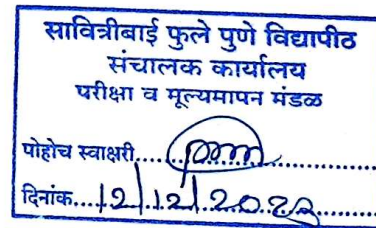 सावित्रीबाई फुले पुणे विद्यापीठ
संचालक कार्यालय
परीक्षा व मूल्यमापन मंडळ
पोहोच स्वाक्षरी....
दिनांक...12/12/20